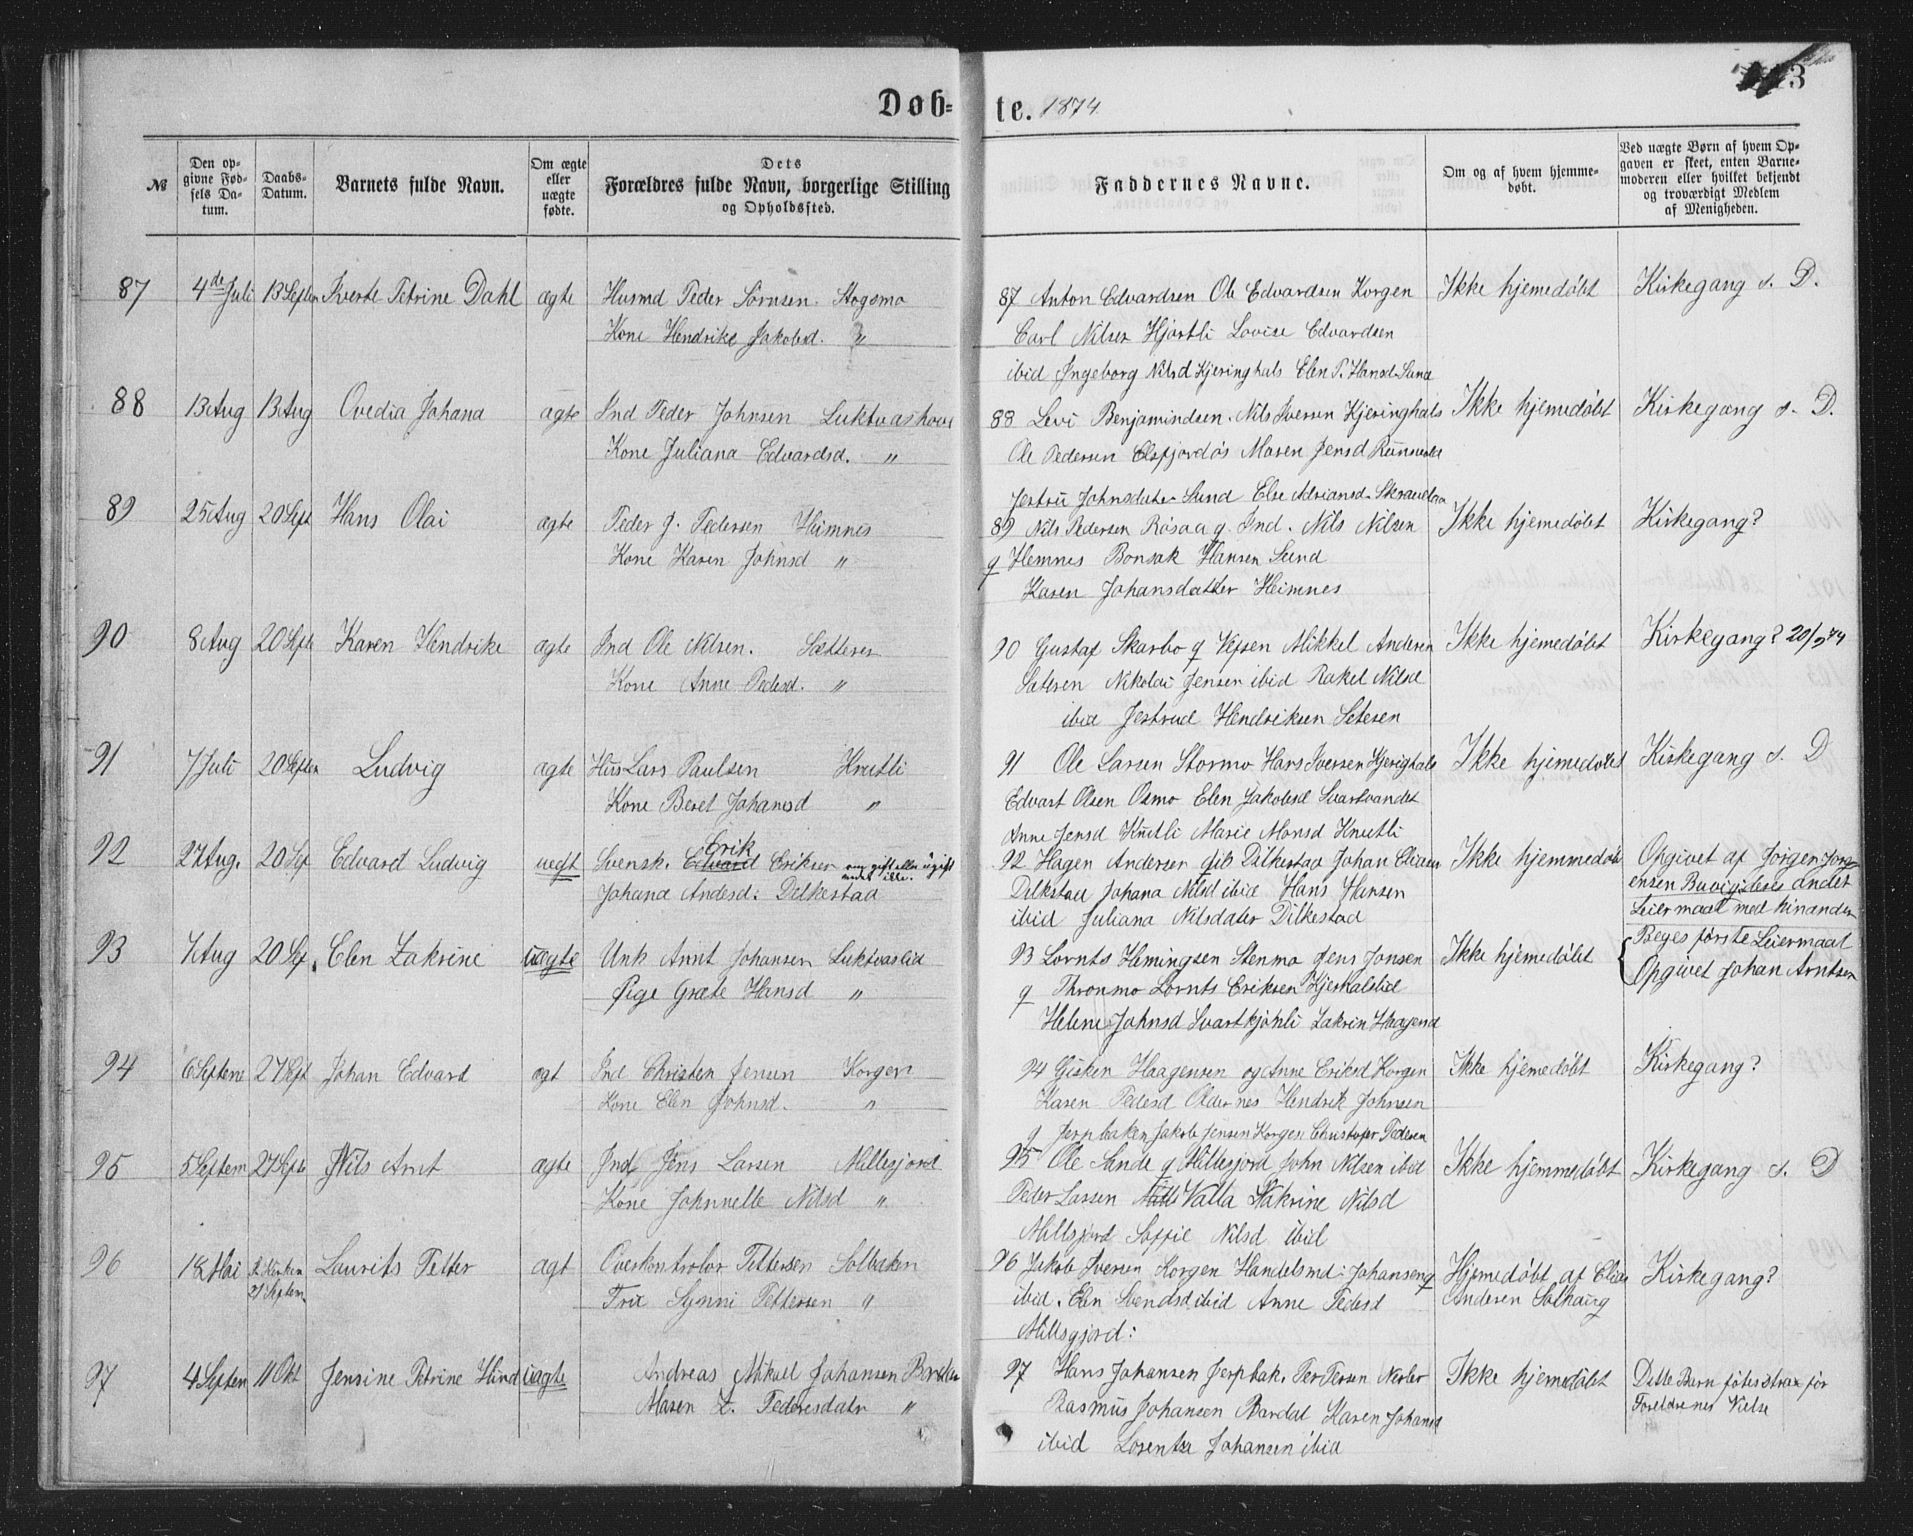 Døb-
te. 1874
№
Den opgivne Fødsels Datum.
Daabs-Datum.
Barnets fulde Navn.
Om ægte eller uægte fødte.
Dets
Forældres fulde Navn, borgerlige Stilling
og Opholdssted.
Faddernes Navne.
Om og af hvem hjemmedøbt.
Ved uægte Børn af hvem Opgaven er skeet, enten Barnemoderen eller hvilket bekjendt og troværdigt Medlem af Menigheden.
87 4de Juli 13 Septem Petrine Dahl ægte Husmd Peder Sørnsen Stogsmo
Kone Hendrike Jakobsd. "
87 Anton Edvardsen Ole Edvardsen Korgen Ikke hjemedøbt Kirkegang s. D.
Carl Nilsen Hjortli Lovise Edvardsen
ibid Ingeborg Nilsd Kjeringhals Elen P. Hansd Sund
88 13 Aug 13 Aug Ovedia Johana ægte Ind Peder Johnsen Luktvashove
Kone Juliana Edvardsd. "
88 Levi Benjamindsen. Nils Iversen Kjeringhals Ikke hjemedøbt Kirkegang s. D.
Ole Pedersen Elsfjordøs Maren Jensd
Jestru Johnsdater Sund Else Adriansd
89 25 Aug 20 Sept Hans Olai ægte Peder J. Pedersen Heimnes
Kone Karen Johnsd "
89 Nils Pedersen Røsaa g. Ind. Nils Nilsen Ikke hjemedøbt Kirkegang?
g Hemnes Bonsak Hansen Sund
Karen Johansdatter Heimnes
90 8 Aug 20 Septe Karen Hendrike ægte Ind Ole Nilsen. Sætteren
Kone Anne Pedesd. "
90 Gustaf Skarbo g Vefsen Mikkel Andersen Ikke hjemedøbt Kirkegang? 20/9 74
Sateren Nikolai Jensen ibid Rakel Nilsd
ibid Jestrud Hendriksen Setesen
91 7 Juli 20 Septem Ludvig ægte Hus Lars Paulsen Knutli
Kone Beret Johansd "
91 Ole Larsen Stormo Hans Iversen Hjerighals Ikke hjemedøbt Kirkegang s. D
Edvart Olsen Osmo Elen Jakobsd Svartvandet
Anne Jensd Knutli Marie Monsd Knutli
92 27 Aug. 20 Sep Edvard Ludvig uegt Svensk. Edvard Erik Eriksen om gift eller ugift vedst ikke.
Johana Andesd: Dilkestad
92 Hagen Andersen Dilkestad Johan Eliasen Ikke hjemmedøbt Opgivet af Jørgen Jørgensen Buvig deres andet
Dilkstad Johana Nilsd ibid Hans Hansen Leiermaal med hinanden
ibid Juliana Nilsdater Dilkestad
93 7 Aug 20 Sep Elen Zakrine uægte Unk Arnt Johansen Luktvaslid
Pige Græte Hansd "
93 Lornts Hemingsen Stenmo Jens Jonsen Ikke hjemedøbt Beges første Leiermaal
g Thronmo Lornts Eriksen Kjerkalslid Opgivet Johan Arntsen
Helene Johnsd Svartkjønli Zakrin Haagensd
94 6 Septem 27 Sept Johan Edvard ægt Ind Christen Jensen Korgen
Kone Elen Johnsd. "
94 Gisken Haagensen og Anne Eriksd Korgen Ikke hjemedøbt Kirkegang?
Karen Pedesd Oldernes Hendrik Johnsen
g Jerpbaken Jakob Jensen Korgen Christofer Pedesen
95 5 Septem 27 Septe Nils Arnt ægte Ind Jens Larsen Millesjord
Kone Johnnelle Nilsd "
95 Ole Sande g Millesjord John Nilsen ibid Ikke hjemmedøbt Kirkegang s. D
Peder Larsen Valla Zakrine Nilsd
Millsjord Soffie Nilsd ibid
96 18 Mai 27 Septem Laurits Petter ægt Overkontrolør Pettersen Solbaken
Fru Synni Pettersen "
96 Jakob Iversen Korgen Handelsmd: Johansen g Hjemedøbt af Elias Kirkegang?
ibid. Elen Svendsd ibid Anne Pedesd Andersen Solhaug
Millsgjord:
97 4 Septem 11 Okt Jensine Petrine Hind uægte Andreas Mikal Johansen Bardal
Maren Z. Pederesdatr "
97 Hans Johansen Jerpbak. Per Persen Ikke hjemedøbt Dette Barn fødes strax før
Rasmus Johansen Bardal Karen Johansd Foreldrenes Vielse
ibid Lorentsa Johansen ibid